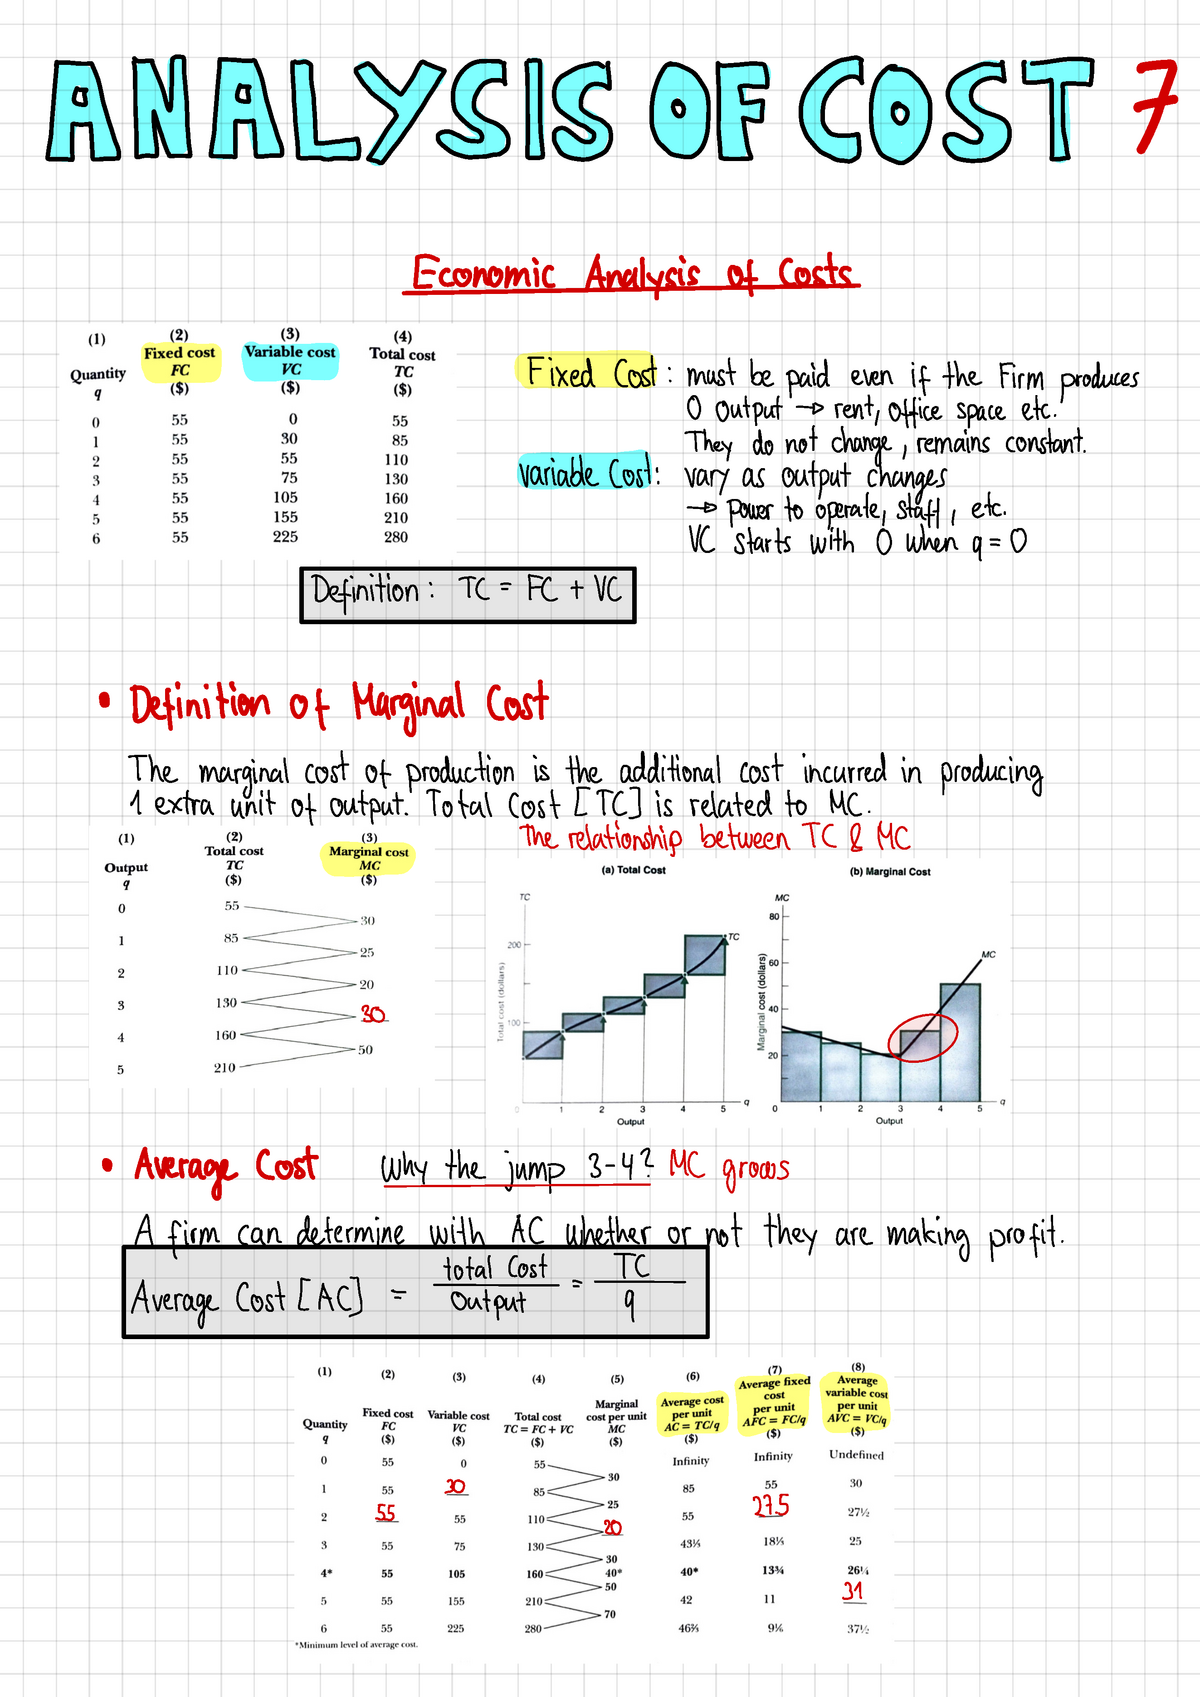 ANALYSIS OF COST 7
Economic Analysis of Costs
(1) (2) (3) (4)
Fixed cost Variable cost Total cost
Quantity FC VC TC
q ($) ($) ($)
0 55 0 55
1 55 30 85
2 55 55 110
3 55 75 130
4 55 105 160
5 55 155 210
6 55 225 280
Fixed Cost: must be paid even if the Firm produces
0 output → rent, office space etc.
They do not change, remains constant.
variable Cost: vary as output changes
→ power to operate, staff, etc.
VC starts with 0 when q = 0
Definition: TC = FC + VC
• Definition of Marginal Cost
The marginal cost of production is the additional cost incurred in producing
1 extra unit of output. Total Cost [TC] is related to MC.
The relationship between TC & MC
(1) (2) (3)
Total cost Marginal cost
Output TC MC
q ($) ($)
0 55
30
1 85
25
2 110
20
3 130
30
4 160
50
5 210
(a) Total Cost
TC
Total cost (dollars)
200
100
0 1 2 3 4 5 q
Output
TC
(b) Marginal Cost
MC
Marginal cost (dollars)
80
60
40
20
0 1 2 3 4 5 q
Output
MC
• Average Cost why the jump 3-4? MC grows
A firm can determine with AC whether or not they are making profit.
Average Cost [AC] = total Cost / Output = TC / q
(1) (2) (3) (4) (5) (6) (7) (8)
Quantity q
Fixed cost FC ($)
Variable cost VC ($)
Total cost TC = FC + VC ($)
Marginal cost per unit MC ($)
Average cost per unit AC = TC/q ($)
Average fixed cost per unit AFC = FC/q ($)
Average variable cost per unit AVC = VC/q ($)
0 55 0 55 Infinity Infinity Undefined
30
1 55 30 85 85 55 30
25
2 55 55 110 55 27.5 27½
20
3 55 75 130 43⅓ 18⅓ 25
30
4* 55 105 160 40* 40* 13¾ 26¼
50
5 55 155 210 42 11 31
70
6 55 225 280 46⅔ 9⅙ 37½
*Minimum level of average cost.